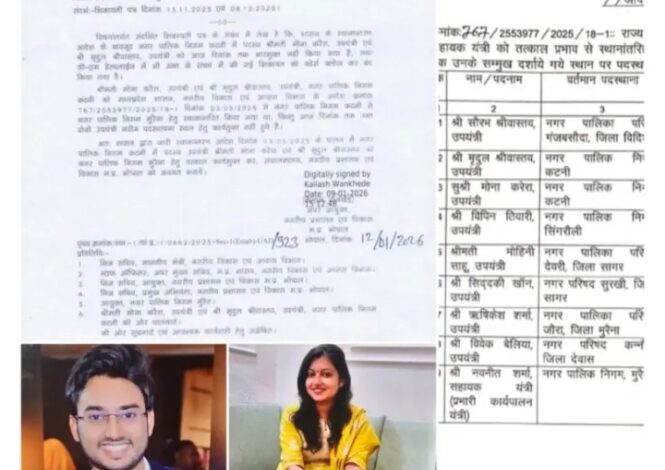 संदर्भ:-शिकायती पत्र दिनांक 13.11.2025 एवं 08.12.2025।
--00--
विषयांतर्गत संदर्भित शिकायती पत्र के संबंध में लेख है कि, शासन के स्थानांतरण
आदेश के बावजूद नगर पालिक निगम कटनी में पदस्थ श्रीमती मोना करेरा, उपयंत्री एवं
श्री मृदुल श्रीवास्तव, उपयंत्री को आज दिनांक तक भारमुक्त नहीं किया गया है, तथा
सी.एम हेल्पलाईन में भी उक्त के संबंध में की गई शिकायत को फोर्स क्लोज कर बंद
किया गया है।
श्रीमती मोना करेरा, उपयंत्री एवं श्री मृदुल श्रीवास्तव, उपयंत्री, नगर पालिक निगम
कटनी को मध्यप्रदेश शासन, नगरीय विकास एवं आवास विभाग के आदेश क्रमांक
767/2553977/2025/18-1 दिनांक 03/05/2025 से नगर पालिक निगम कटनी से
नगर पालिक निगम मुरैना हेतु स्थानांतरित किया गया था, किन्तु आज दिनांक तक उक्त
दोनों उपयंत्री नवीन पदस्थापना स्थल हेतु कार्यमुक्त नहीं हुये है।
अतः शासन द्वारा जारी स्थानांतरण आदेश दिनांक 03.05.2025 के पालन में नगर
पालिक निगम कटनी में पदस्थ उपयंत्री श्रीमती मोना करेरा एवं श्री मृदुल श्रीवास्तव को
नगर पालिक निगम मुरैना हेतु तत्काल कार्यमुक्त कर, संचालनालय, नगरीय प्रशासन एवं
विकास म.प्र. भोपाल को अवगत करायें।
Digitally signed by
Kailash Wankhede
Date: 09-01-2026
15:12:48
अपर आयुक्त,
नगरीय प्रशासन एवं विकास
म.प्र. भोपाल
/923 भोपाल, दिनांक 12/01/2026
प्रतिलिपि:-
1. निज सचिव, माननीय मंत्री, नगरीय विकास एवं आवास विभाग।
2. स्टाफ ऑफिसर, अपर मुख्य सचिव, म.प्र. शासन, नगरीय विकास एवं आवास विभाग।
3. निज सचिव, आयुक्त, नगरीय प्रशासन एवं विकास म.प्र. भोपाल।
4. निज सचिव, प्रमुख अभियंता, नगरीय प्रशासन एवं विकास म.प्र. भोपाल।
5. आयुक्त, नगर पालिक निगम मुरैना।
6. श्रीमती मोना करेरा, उपयंत्री एवं श्री मृदुल श्रीवास्तव, उपयंत्री, नगर पालिक निगम
कटनी की ओर पालनार्थ।
की ओर सूचनार्थ एवं आवश्यक कार्यवाही हेतु अग्रेषित।
767/2553977/2025/18-1:: राज्य
सहायक यंत्री को तत्काल प्रभाव से स्थानांतरि
उनके सम्मुख दर्शाये गये स्थान पर पदस्थ
नाम/पदनाम वर्तमान पदस्थाना
2 3
श्री सौरभ श्रीवास्तव, उपयंत्री नगर पालिका परि गंजबसौदा, जिला विदि
श्री मृदुल श्रीवास्तव, उपयंत्री नगर पालिक नि कटनी
सुश्री मोना करेरा, उपयंत्री नगर पालिक नि कटनी
श्री विपिन तिवारी, उपयंत्री नगर पालिक नि सिंगरौली
श्रीमती मोहिनी साहू, उपयंत्री नगर पालिका परि देवरी, जिला सागर
श्री सिद्दकी खॉन, उपयंत्री नगर परिषद सुरखी, जि सागर
श्री ऋषिकेश शर्मा, उपयंत्री नगर पालिका परि जौरा, जिला मुरैना
श्री विवेक बेलिया, उपयंत्री नगर परिषद कन्नौ जिला देवास
श्री नवनीत शर्मा, सहायक यंत्री (प्रभारी कार्यपालन यंत्री) नगर पालिक निगम, मुरै